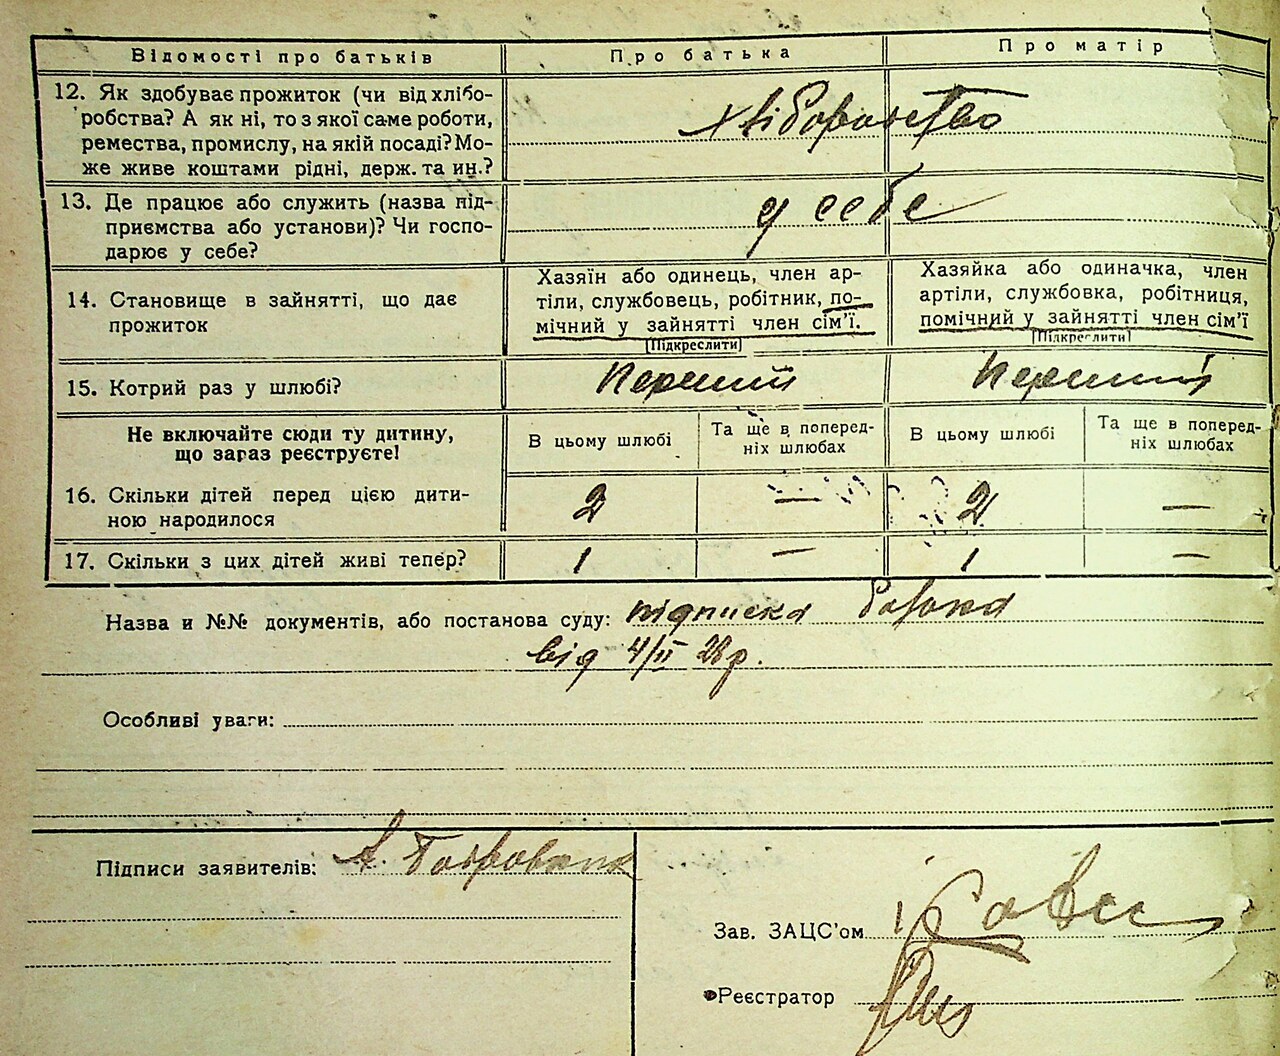 Відомості про батьків
Про батька
Про матір
12. Як здобуває прожиток (чи від хлібо-
робства? А як ні, то з якої саме роботи,
ремества, промислу, на якій посаді? Мо-
же живе коштами рідні, держ. та ин.?
хліборобство
13. Де працює або служить (назва під-
приємства або установи)? Чи госпо-
дарює у себе?
у себе
14. Становище в зайнятті, що дає
прожиток
Хазяїн або одинець, член ар-
тіли, службовець, робітник, по-
мічний у зайнятті член сім'ї.
[Підкреслити]
Хазяйка або одиначка, член
артіли, службовка, робітниця,
помічний у зайнятті член сім'ї
[Підкреслити]
15. Котрий раз у шлюбі?
Перший
Перший
Не включайте сюди ту дитину,
що зараз реєструєте!
В цьому шлюбі
Та ще в поперед-
ніх шлюбах
В цьому шлюбі
Та ще в поперед-
ніх шлюбах
16. Скільки дітей перед цією дити-
ною народилося
2 — 2 —
17. Скільки з цих дітей живі тепер?
1 — 1 —
Назва и №№ документів, або постанова суду: підписка
від 4/II 28 р.
Особливі уваги:
Підписи заявителів: А.
Зав. ЗАЦС'ом
Реєстратор